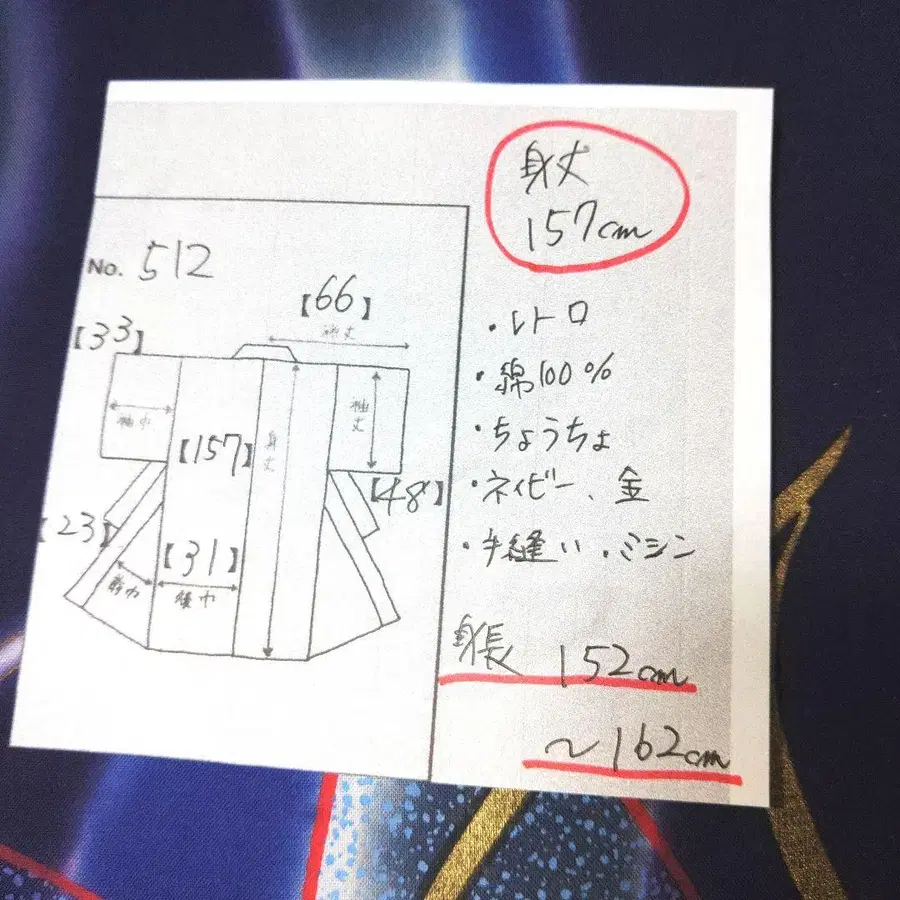 No. 512
【66】
裄丈
【33】
袖巾
袖丈
【157】
身丈
【48】
【23】
【31】
前巾
後巾
身丈
157cm
・レトロ
・綿100%
・ちょうちょ
・ネイビー、金
・手縫い・ミシン
身長 152cm
~162cm